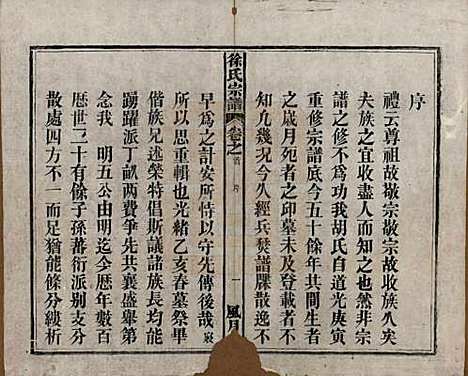 序
禮云尊祖故敬宗敬宗故收族久矣
夫族之宜收盡人而知之也然非宗
譜之修不為功我胡氏自道光庚寅
重修宗譜底今五十餘年共間生者
之歲月死者之卬墓未及登載者不
知凡幾況今久經兵焚譜牒散逸不
徐氏宗譜 卷之首 序 一 風月
早為之計安所恃以守先傳後哉
所以思重輯也光緒乙亥春墓祭畢
偕族兄逑榮特倡斯議諸族長均能
踴躍派丁畝兩費爭先共襄盛舉第
念我 明五公由明迄今歷年數百
歷世二十有餘子孫蕃衍派別支分
散處四方不一而足猶能條分縷析